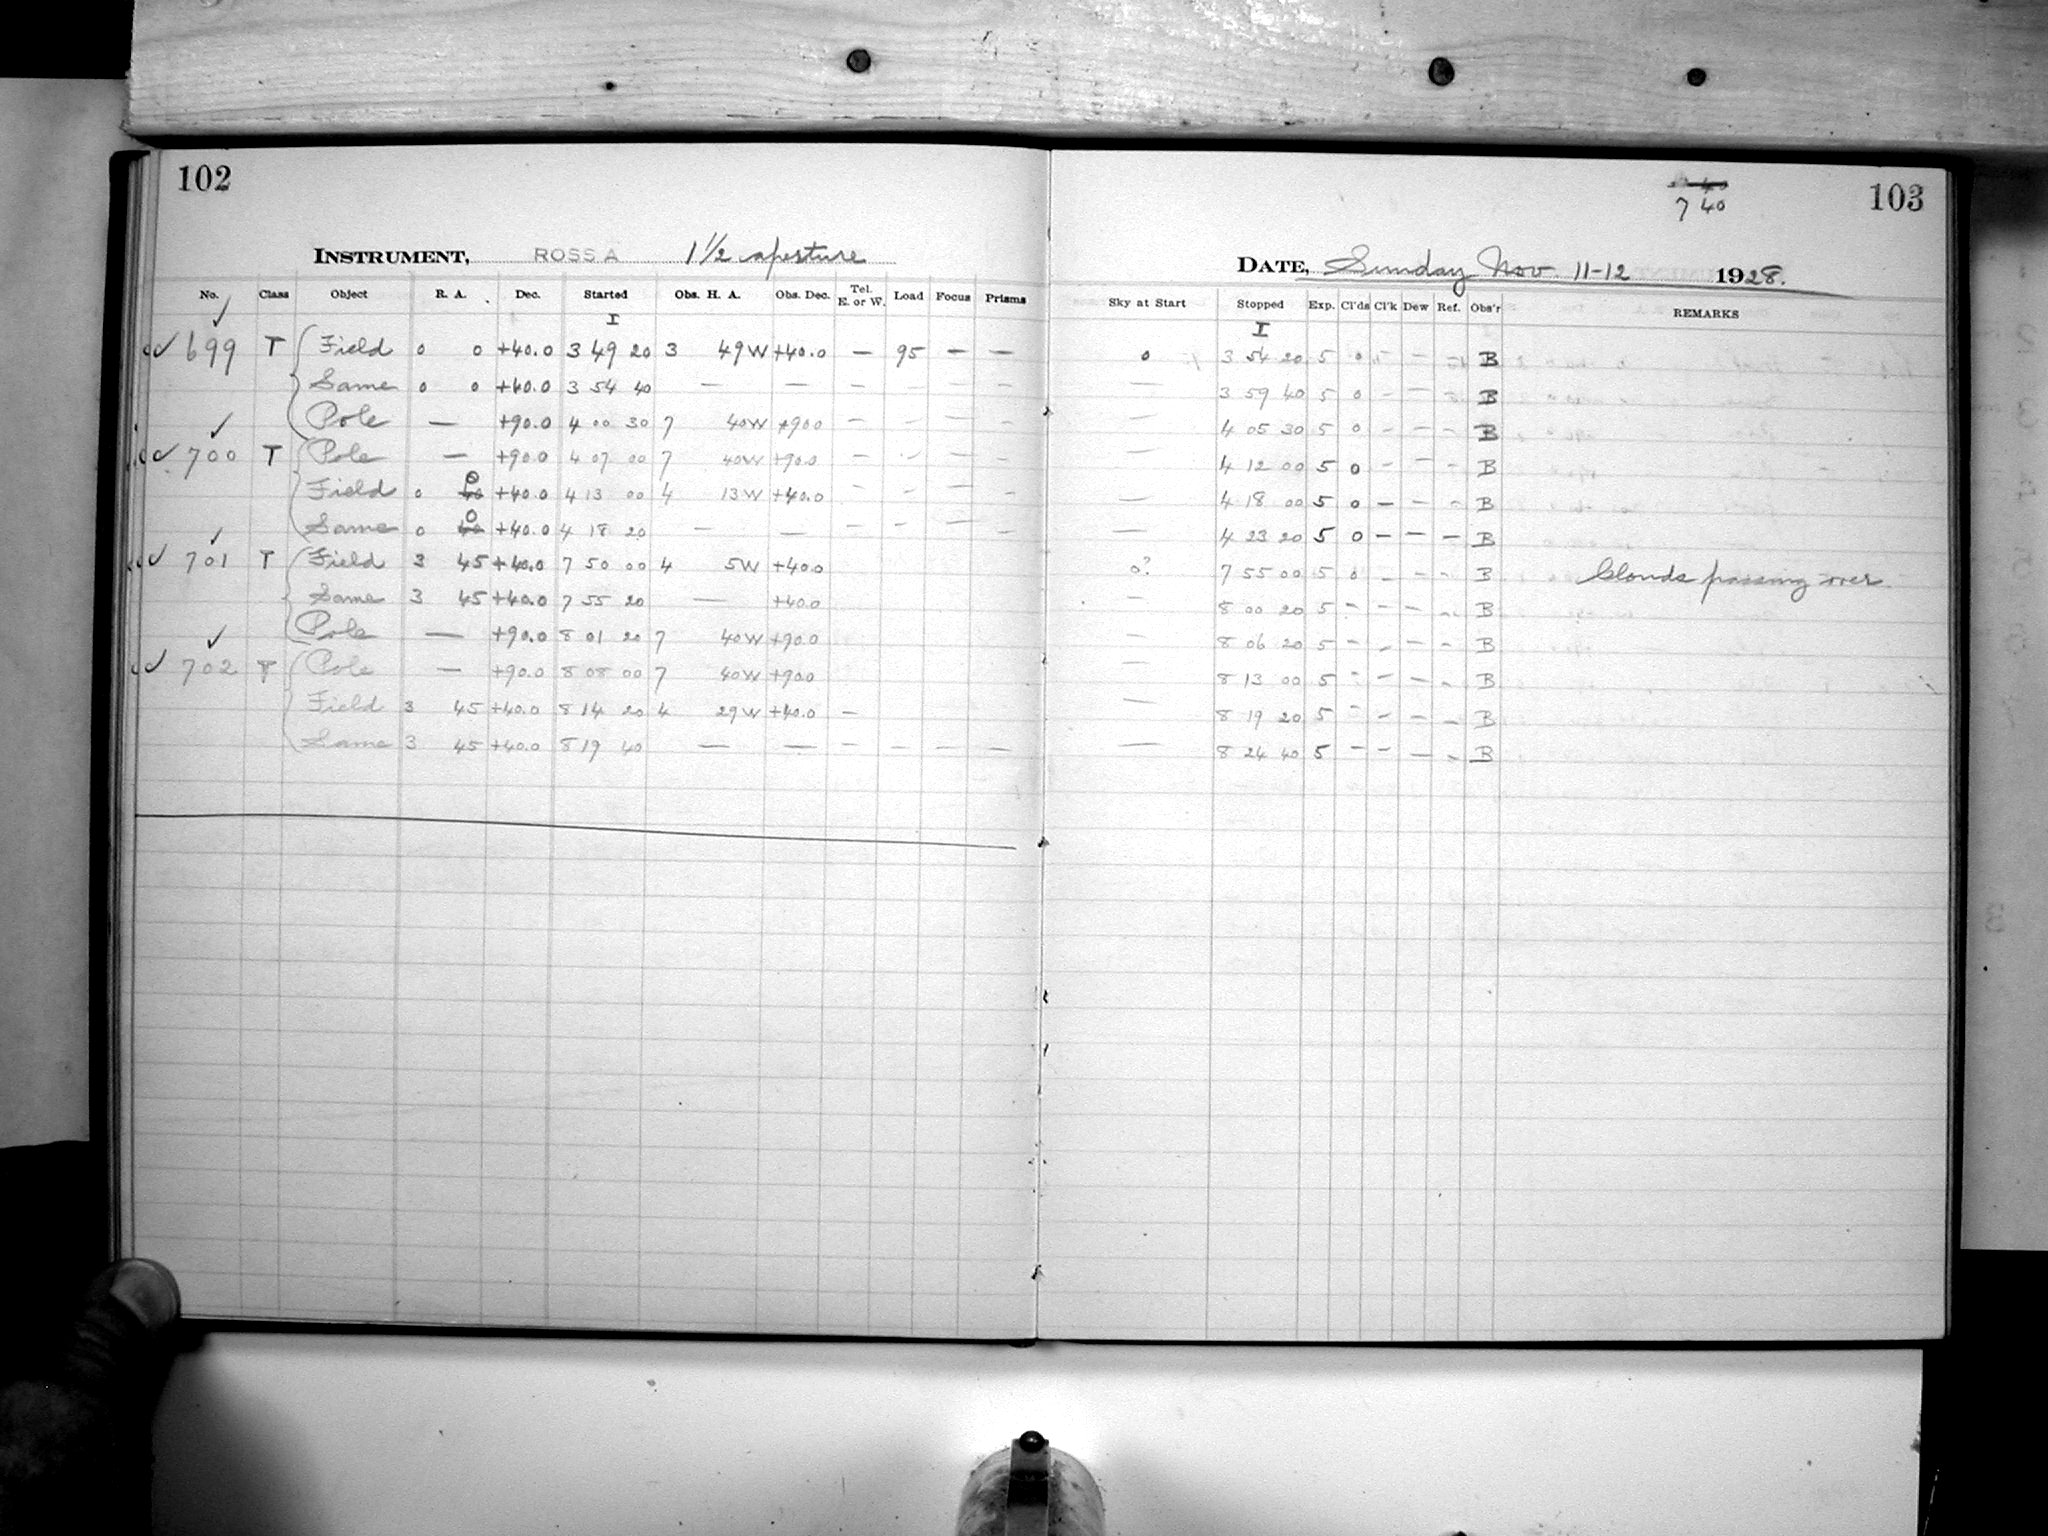 102
INSTRUMENT, ROSS A 1 1/2 aperture
No. Class Object R. A. Dec. Started Obs. H. A. Obs. Dec. Tel. E. or W. Load Focus Prisms
I
699 T Field 0 0 +40.0 3 49 20 3 49W +40.0 — 95 — —
Same 0 0 +40.0 3 54 40 — — — — — —
Pole — +90.0 4 00 30 7 40W +90.0 — — — —
700 T Pole — +90.0 4 07 00 7 40W +90.0 — — — —
Field 0 0 +40.0 4 13 00 4 13W +40.0 — — — —
Same 0 0 +40.0 4 18 20 — — — — — —
701 T Field 3 45 +40.0 7 50 00 4 5W +40.0
Same 3 45 +40.0 7 55 20 — +40.0
Pole — +90.0 8 01 20 7 40W +90.0
702 T Pole — +90.0 8 08 00 7 40W +90.0
Field 3 45 +40.0 8 14 20 4 29W +40.0 —
Same 3 45 +40.0 8 19 40 — — — — — —
7 40
103
DATE, Sunday Nov 11-12 1928.
Sky at Start Stopped Exp. Cl'ds Cl'k Dew Ref. Obs'r REMARKS
I
0 3 54 20 5 0 — — B
— 3 59 40 5 0 - — B
— 4 05 30 5 0 - - - B
— 4 12 00 5 0 - - - B
— 4 18 00 5 0 — - - B
— 4 23 20 5 0 — — — B
0? 7 55 00 5 0 - - - B Clouds passing over
— 8 00 20 5 - - - - B
— 8 06 20 5 - - - - B
— 8 13 00 5 - - - - B
— 8 19 20 5 - - - - B
— 8 24 40 5 - - - - B